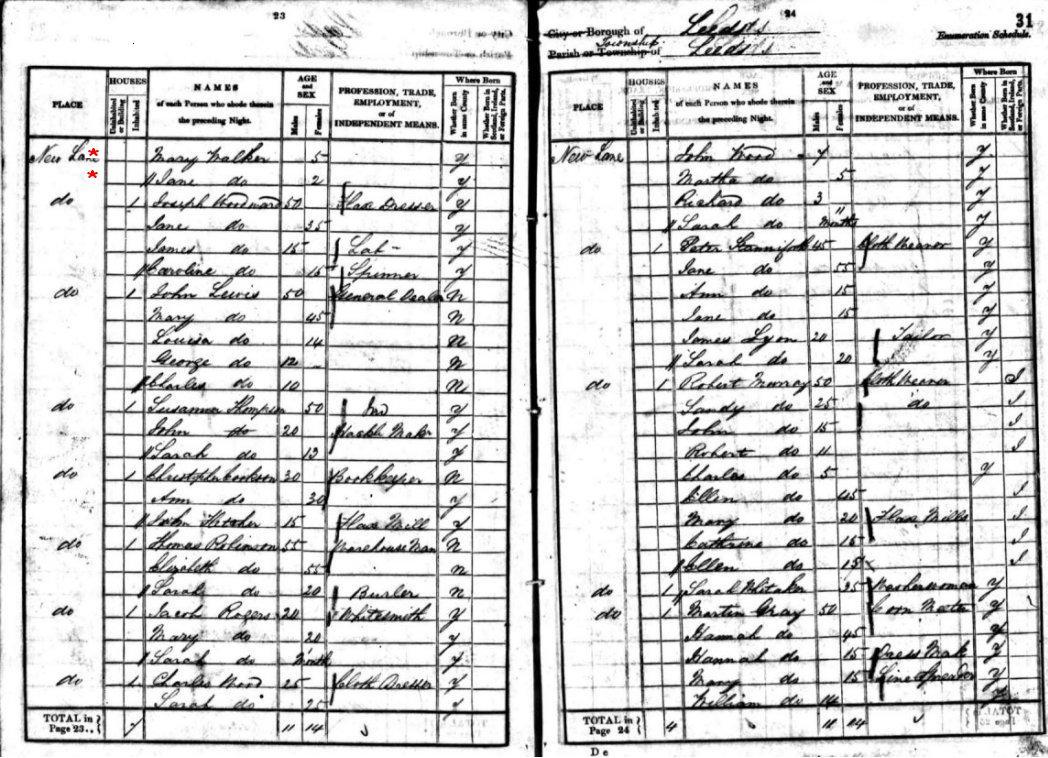 23
PLACE HOUSES Uninhabited or Building Inhabited NAMES of each Person who abode therein the preceding Night. AGE and SEX Males Females PROFESSION, TRADE, EMPLOYMENT, or of INDEPENDENT MEANS. Where Born Whether Born in same County Whether Born in Scotland, Ireland, or Foreign Parts.
New Lane * Mary Walker 5 y
* Jane do 2 y
do 1 Joseph Woodward 50 Flax Dresser y
Jane do 35 y
James do 15 Lab y
Caroline do 15 Spinner y
do 1 John Lewis 50 General Dealer N
Mary do 45 N
Louisa do 14 N
George do 12 N
Charles do 10 N
do 1 Susannah Thompson 50 Ind y
John do 20 Hackle Maker y
Sarah do 13 y
do 1 Christopher Cookson 30 Bookkeeper N
Ann do 30 y
John Fletcher 15 Flax Mill y
do 1 Thomas Robinson 55 Warehouse Man N
Elizabeth do 55 N
Sarah do 20 Burler N
do 1 Jacob Rogers 20 Whitesmith y
Mary do 20 y
Sarah do Month y
do 1 Charles Wood 25 Cloth Dresser y
Sarah do 25 y
TOTAL in Page 23.. 7 11 14
24
31
City or Borough of Leeds
Parish or Township of Township Leeds
Enumeration Schedule.
PLACE HOUSES Uninhabited or Building Inhabited NAMES of each Person who abode therein the preceding Night. AGE and SEX Males Females PROFESSION, TRADE, EMPLOYMENT, or of INDEPENDENT MEANS. Where Born Whether Born in same County Whether Born in Scotland, Ireland, or Foreign Parts.
New Lane John Wood 7 y
Martha do 5 y
Richard do 3 y
Sarah do 11 Months y
do 1 Peter 45 Cloth Weaver y
Jane do 55 y
Ann do 15 y
Jane do 15 y
James Lyon 20 Tailor y
Sarah do 20 y
do 1 Robert Murray 50 Cloth Weaver I
Sandy do 25 do I
John do 15 I
Robert do 11 I
Charles do 5 y
Ellen do 45 I
Mary do 20 Flax Mills I
Cathrine do 15 I
Ellen do 15 I
do 1 Sarah Whitaker 35 Washerwoman y
do 1 Martin Gray 50 Corn y
Hannah do 45 y
Hannah do 15 Dress Mak y
Mary do 15 Line Spreader y
William do 14 y
TOTAL in Page 24 4
D e